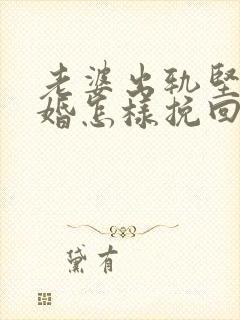 老婆出轨坚
婚怎样挽回
黛有